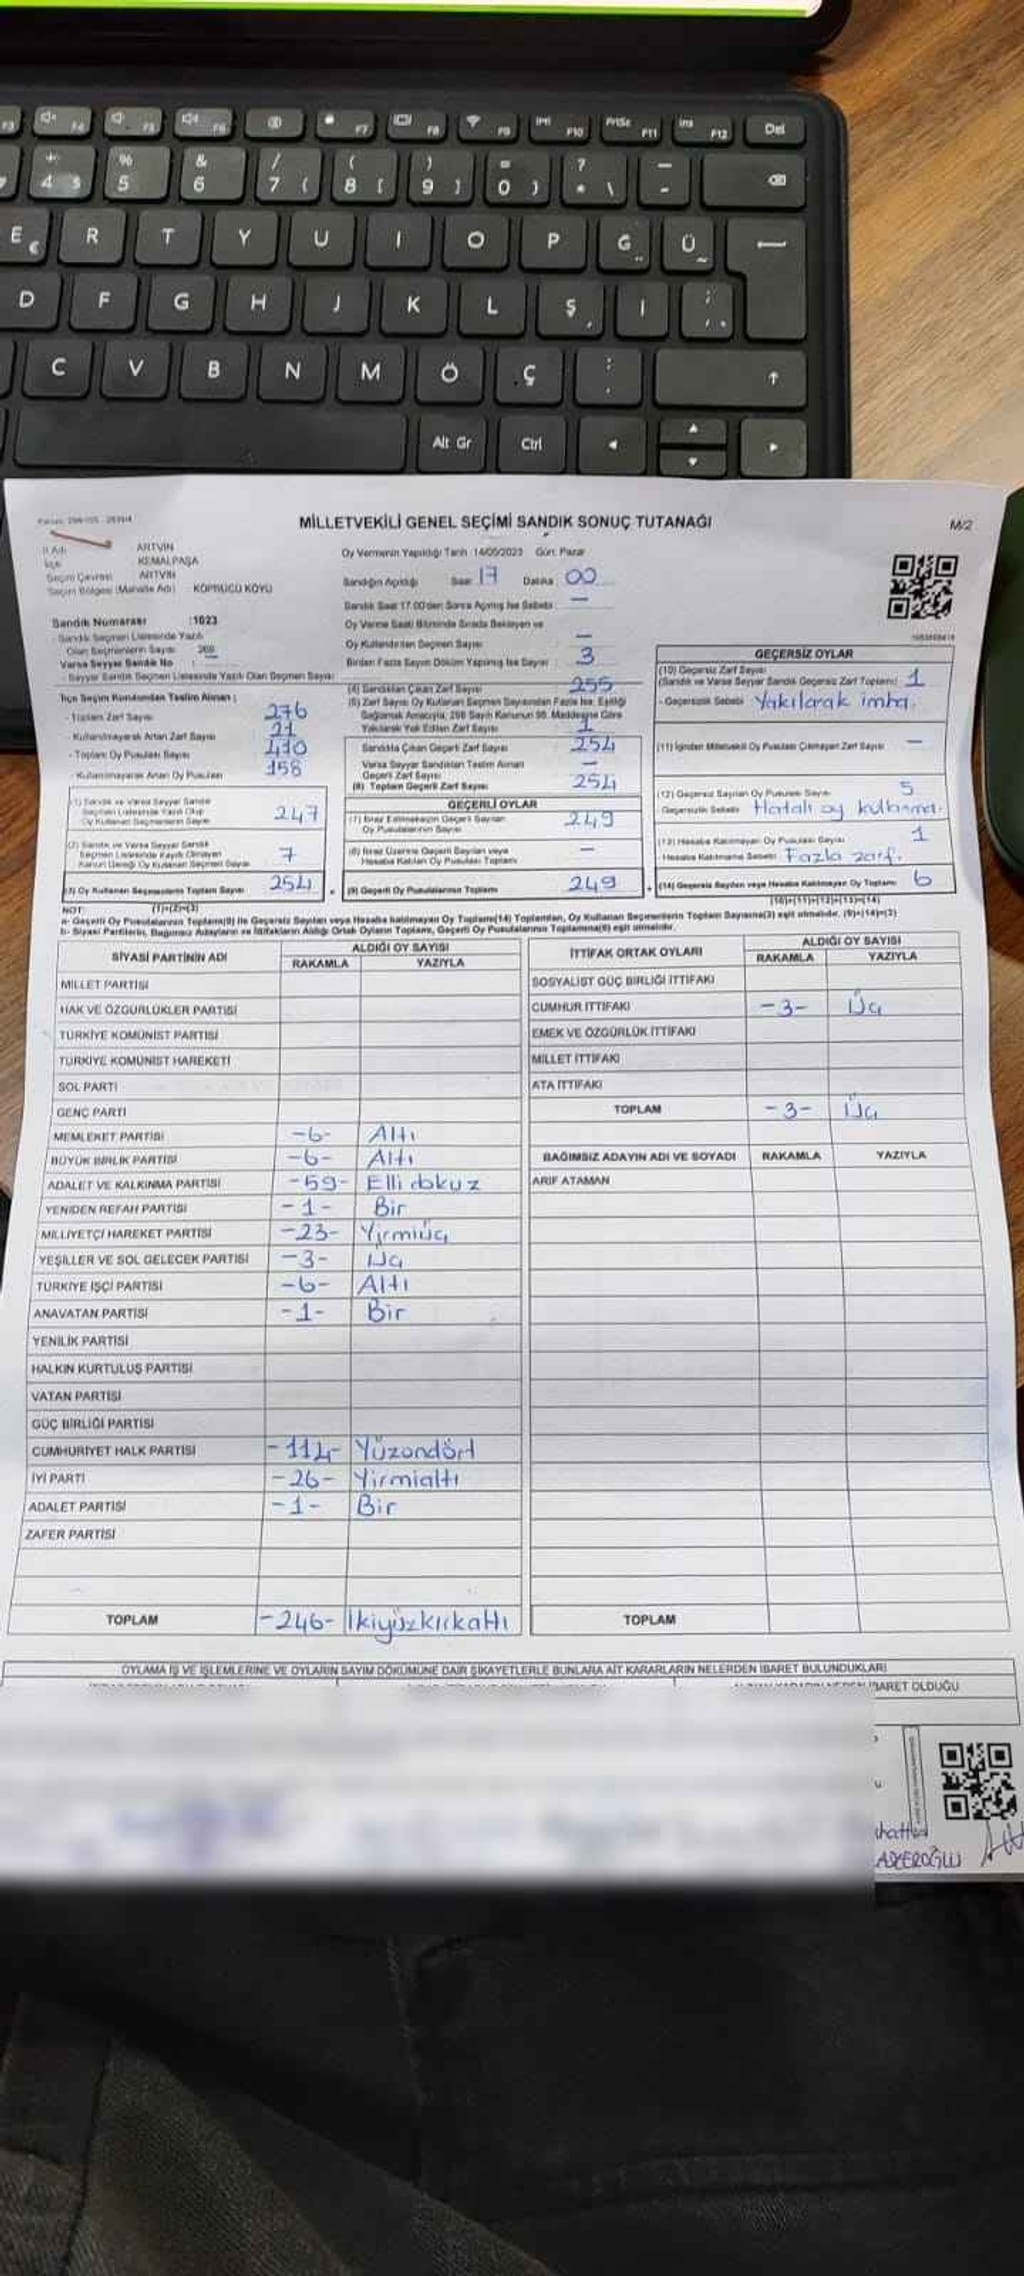 F3 F4 F5 F6 F7 F8 F9 F10 PrtSc F11 Ins F12 Del
4 $ % 5 & 6 / 7 { ( 8 [ ) 9 ] = 0 } ? * \ -
E € R T Y U I O P Ğ Ü
D F G H J K L Ş İ ;
C V B N M Ö Ç :
Alt Gr Ctrl
MİLLETVEKİLİ GENEL SEÇİMİ SANDIK SONUÇ TUTANAĞI M/2
İl Adı ARTVİN
İlçe KEMALPAŞA
Seçim Çevresi ARTVİN
Seçim Bölgesi (Mahalle Adı) KÖPRÜCÜ KÖYÜ
Sandık Numarası :1023
Sandık Seçmen Listesinde Yazılı
Olan Seçmenlerin Sayısı 269
Varsa Seyyar Sandık No :
Seyyar Sandık Seçmen Listesinde Yazılı Olan Seçmen Sayısı:
İlçe Seçim Kurulundan Teslim Alınan ;
- Toplam Zarf Sayısı 276
- Kullanılmayarak Artan Zarf Sayısı 21
- Toplam Oy Pusulası Sayısı 410
- Kullanılmayarak Artan Oy Pusulası 158
(1) Sandık ve Varsa Seyyar Sandık
Seçmen Listesinde Kayıtlı Olup
Oy Kullanan Seçmenlerin Sayısı 247
(2) Sandık ve Varsa Seyyar Sandık
Seçmen Listesinde Kayıtlı Olmayan
Kanun Gereği Oy Kullanan Seçmenlerin Sayısı 7
(3) Oy Kullanan Seçmenlerin Toplam Sayısı 254
(1)+(2)=(3)
Oy Vermenin Yapıldığı Tarih :14/05/2023 Gün: Pazar
Sandığın Açıldığı Saat 17 Dakika : 00
Sandık Saat 17.00'den Sonra Açılmış İse Sebebi : —
Oy Verme Saati Bitiminde Sırada Bekleyen ve
Oy Kullandırılan Seçmen Sayısı —
Birden Fazla Sayım Döküm Yapılmış İse Sayısı 3
(4) Sandıktan Çıkan Zarf Sayısı 255
(5) Zarf Sayısı Oy Kullanan Seçmen Sayısından Fazla İse, Eşitliği
Sağlamak Amacıyla, 298 Sayılı Kanunun 98. Maddesine Göre
Yakılarak Yok Edilen Zarf Sayısı 1
Sandıkta Çıkan Geçerli Zarf Sayısı 254
Varsa Seyyar Sandıktan Teslim Alınan
Geçerli Zarf Sayısı —
(6) Toplam Geçerli Zarf Sayısı 254
GEÇERLİ OYLAR
(7) İtiraz Edilmeksizin Geçerli Sayılan
Oy Pusulalarının Sayısı 249
(8) İtiraz Üzerine Geçerli Sayılan veya
Hesaba Katılan Oy Pusulası Toplamı —
(9) Geçerli Oy Pusulalarının Toplamı 249
GEÇERSİZ OYLAR
(10) Geçersiz Zarf Sayısı
(Sandık ve Varsa Seyyar Sandık Geçersiz Zarf Toplamı) 1
- Geçersizlik Sebebi Yakılarak imha.
(11) İçinden Milletvekili Oy Pusulası Çıkmayan Zarf Sayısı —
(12) Geçersiz Sayılan Oy Pusulası Sayısı 5
Geçersizlik Sebebi Hatalı oy kullanma.
(13) Hesaba Katılmayan Oy Pusulası Sayısı 1
- Hesaba Katılmama Sebebi Fazla zarf.
(14) Geçersiz Sayılan veya Hesaba Katılmayan Oy Toplamı 6
(10)+(11)+(12)+(13)=(14)
NOT:
a- Geçerli Oy Pusulalarının Toplamı(9) ile Geçersiz Sayılan veya Hesaba katılmayan Oy Toplamı(14) Toplamları, Oy Kullanan Seçmenlerin Toplam Sayısına(3) eşit olmalıdır. (9)+(14)=(3)
b- Siyasi Partilerin, Bağımsız Adayların ve İttifakların Aldığı Ortak Oyların Toplamı, Geçerli Oy Pusulalarının Toplamına(9) eşit olmalıdır.
SİYASİ PARTİNİN ADI ALDIĞI OY SAYISI
RAKAMLA YAZIYLA
MİLLET PARTİSİ
HAK VE ÖZGÜRLÜKLER PARTİSİ
TÜRKİYE KOMÜNİST PARTİSİ
TÜRKİYE KOMÜNİST HAREKETİ
SOL PARTİ
GENÇ PARTİ
MEMLEKET PARTİSİ -6- Altı
BÜYÜK BİRLİK PARTİSİ -6- Altı
ADALET VE KALKINMA PARTİSİ -59- Elli dokuz
YENİDEN REFAH PARTİSİ -1- Bir
MİLLİYETÇİ HAREKET PARTİSİ -23- Yirmiüç
YEŞİLLER VE SOL GELECEK PARTİSİ -3- Üç
TÜRKİYE İŞÇİ PARTİSİ -6- Altı
ANAVATAN PARTİSİ -1- Bir
YENİLİK PARTİSİ
HALKIN KURTULUŞ PARTİSİ
VATAN PARTİSİ
GÜÇ BİRLİĞİ PARTİSİ
CUMHURİYET HALK PARTİSİ -114- Yüzondört
İYİ PARTİ -26- Yirmialtı
ADALET PARTİSİ -1- Bir
ZAFER PARTİSİ
TOPLAM -246- İkiyüzkırkaltı
İTTİFAK ORTAK OYLARI ALDIĞI OY SAYISI
RAKAMLA YAZIYLA
SOSYALİST GÜÇ BİRLİĞİ İTTİFAKI
CUMHUR İTTİFAKI -3- Üç
EMEK VE ÖZGÜRLÜK İTTİFAKI
MİLLET İTTİFAKI
ATA İTTİFAKI
TOPLAM -3- Üç
BAĞIMSIZ ADAYIN ADI VE SOYADI RAKAMLA YAZIYLA
ARİF ATAMAN
TOPLAM
OYLAMA İŞ VE İŞLEMLERİNE VE OYLARIN SAYIM DÖKÜMÜNE DAİR ŞİKAYETLERLE BUNLARA AİT KARARLARIN NELERDEN İBARET BULUNDUKLARI
İBARET OLDUĞU